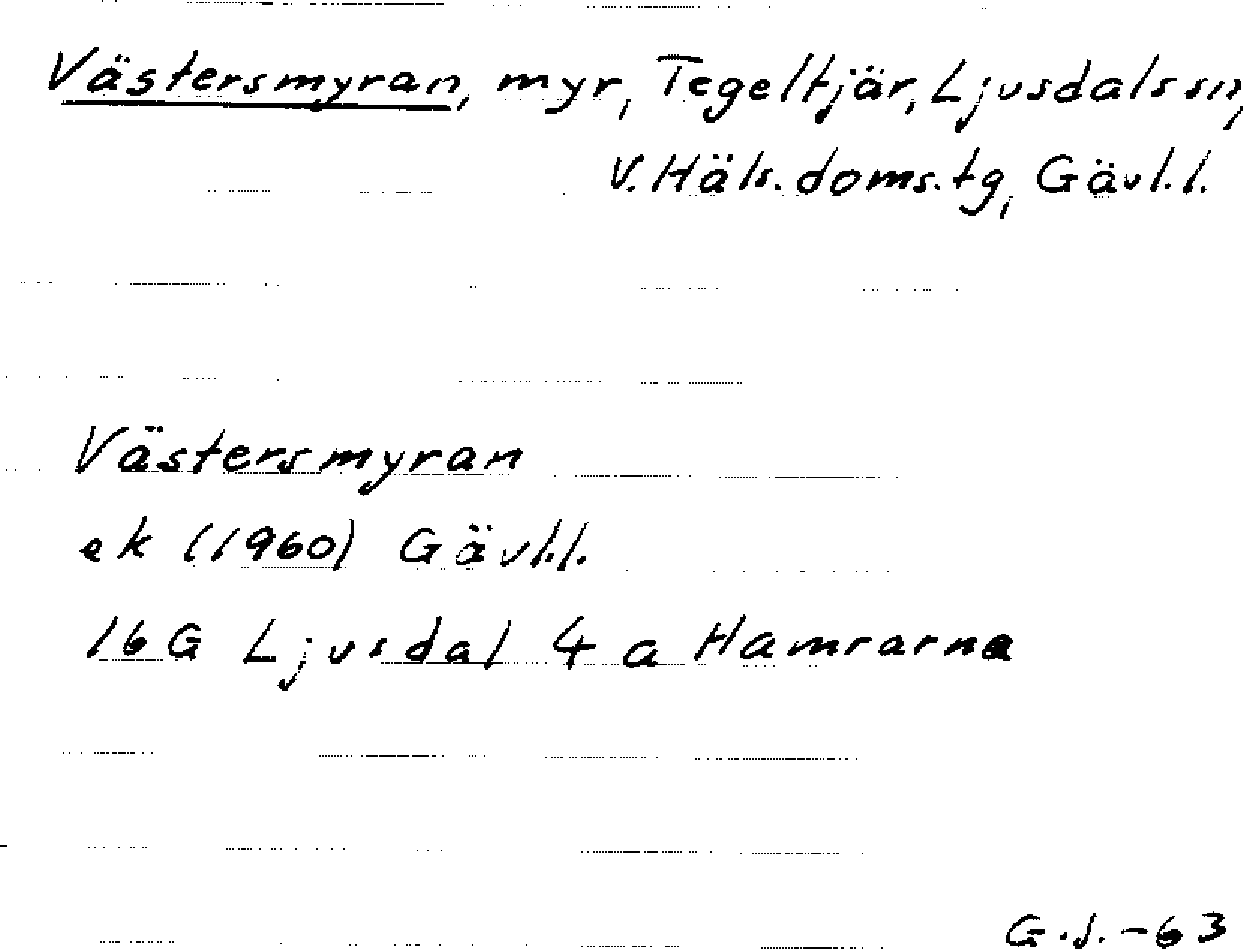 Västersmyran, myr, Tegeltjär, Ljusdals sn,
V. Häls. doms. tg, Gävl.l.
Västersmyran
ek (1960) Gävl.l.
16G Ljusdal 4 a Hamrarna
G.J. -63